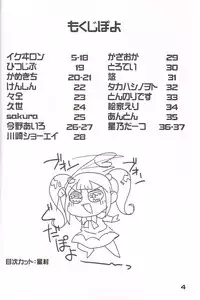 もくじぽよ
イケヰロン 5-18
ひつじぶ 19
かめきち 20-21
けんしん 22
々仝 23
久世 24
sakura 25
今野あいろ 26-27
川崎ショーエイ 28
かざおか 29
とろてい 30
悠 31
タカハシノヲト 32
とんのりです 33
絵家えり 34
あんとん 35
星乃だーつ 36-37
ぐだぽよ
目次カット：星村
4